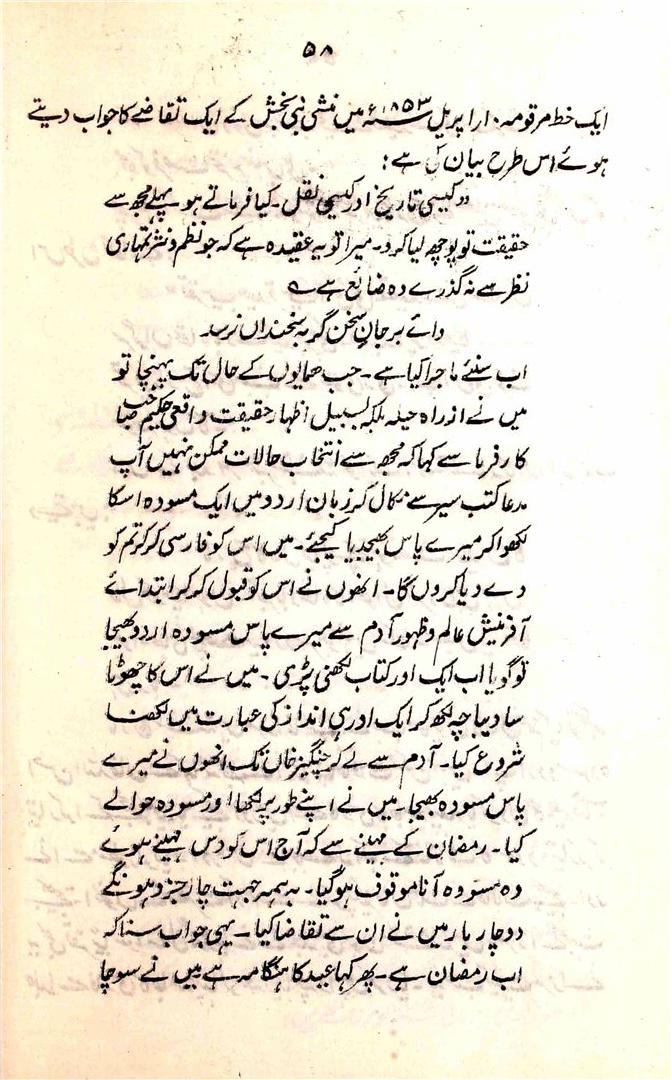 ۵۸
ایک خط مرقومہ ۱۰ اپریل ۱۸۵۳ء میں منشی نبی بخش کے ایک تقاضے کا جواب دیتے
ہوئے اس طرح بیان کی ہے:
"کیسی تاریخ اور کیسی نقل۔ کیا فرماتے ہو پہلے مجھ سے
حقیقت تو پوچھ لیا کرو۔ میرا تو یہ عقیدہ ہے کہ جو نظم و نثر تمہاری
نظر سے نہ گذرے وہ ضائع ہے ؎
وائے بر جانِ سخن گر بہ سخنداں نرسد۔
اب سنئے ماجرا کیا ہے۔ جب ہمایوں کے حال تک پہنچا تو
میں نے از راہ حیلہ بلکہ بسبیل اظہار حقیقت واقعی حکیم صاحب
کار فرما سے کہا کہ مجھ سے انتخاب حالات ممکن نہیں آپ
مدعا کتب سیر سے نکال کر زبان اردو میں ایک مسودہ اسکا
لکھوا کر میرے پاس بھیجدیا کیجئے۔ میں اس کو فارسی کر کر تم کو
دے دیا کروں گا۔ انھوں نے اس کو قبول کر کر ابتدائے
آفرنیش عالم و ظہور آدم سے میرے پاس مسودہ اردو بھیجا
تو گویا اب ایک اور کتاب لکھنی پڑی۔ میں نے اس کا چھوٹا
سا دیباچہ لکھ کر ایک اور ہی انداز کی عبارت میں لکھنا
شروع کیا۔ آدم سے لے کر چنگیز خاں تک انھوں نے میرے
پاس مسودہ بھیجا۔ میں نے اپنے طور پر لکھا اور مسودہ حوالے
کیا۔ رمضان کے مہینے سے کہ آج اس کو دس مہینے ہوئے
وہ مسودہ آنا موقوف ہو گیا۔ بہ ہمہ جہت چار جزو ہونگے
دو چار بار میں نے ان سے تقاضا کیا۔ یہی جواب سنا کہ
اب رمضان ہے۔ پھر کہا عید کا ہنگامہ ہے میں نے سوچا